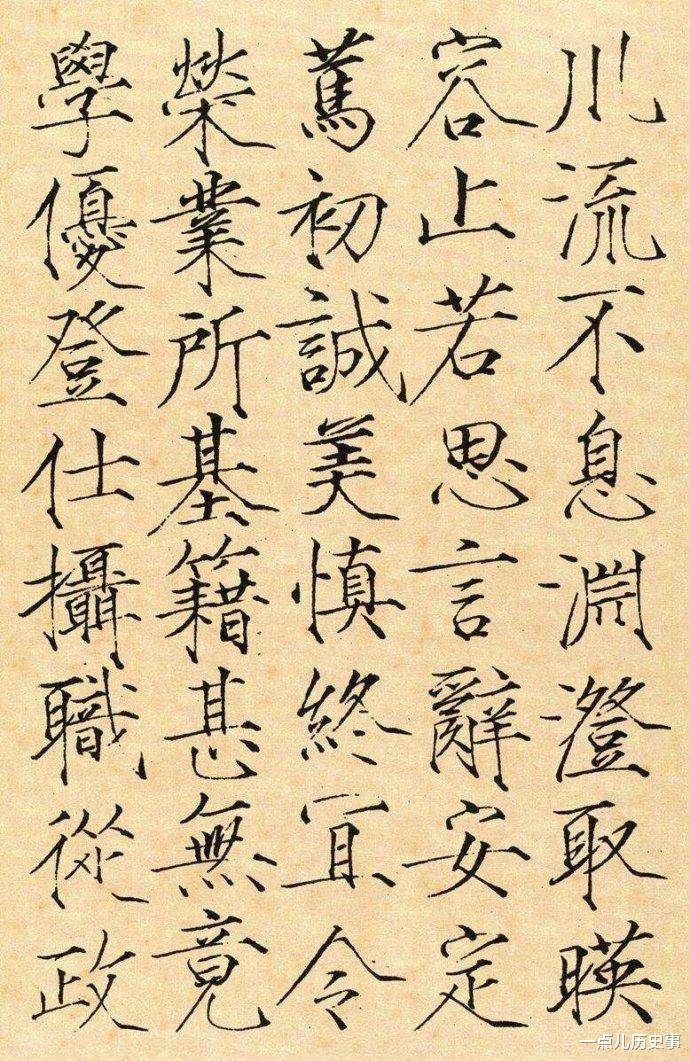 川流不息淵澄取暎
容止若思言辭安定
篤初誠美慎終宜令
榮業所基籍甚無竟
學優登仕攝職從政
一点儿历史事